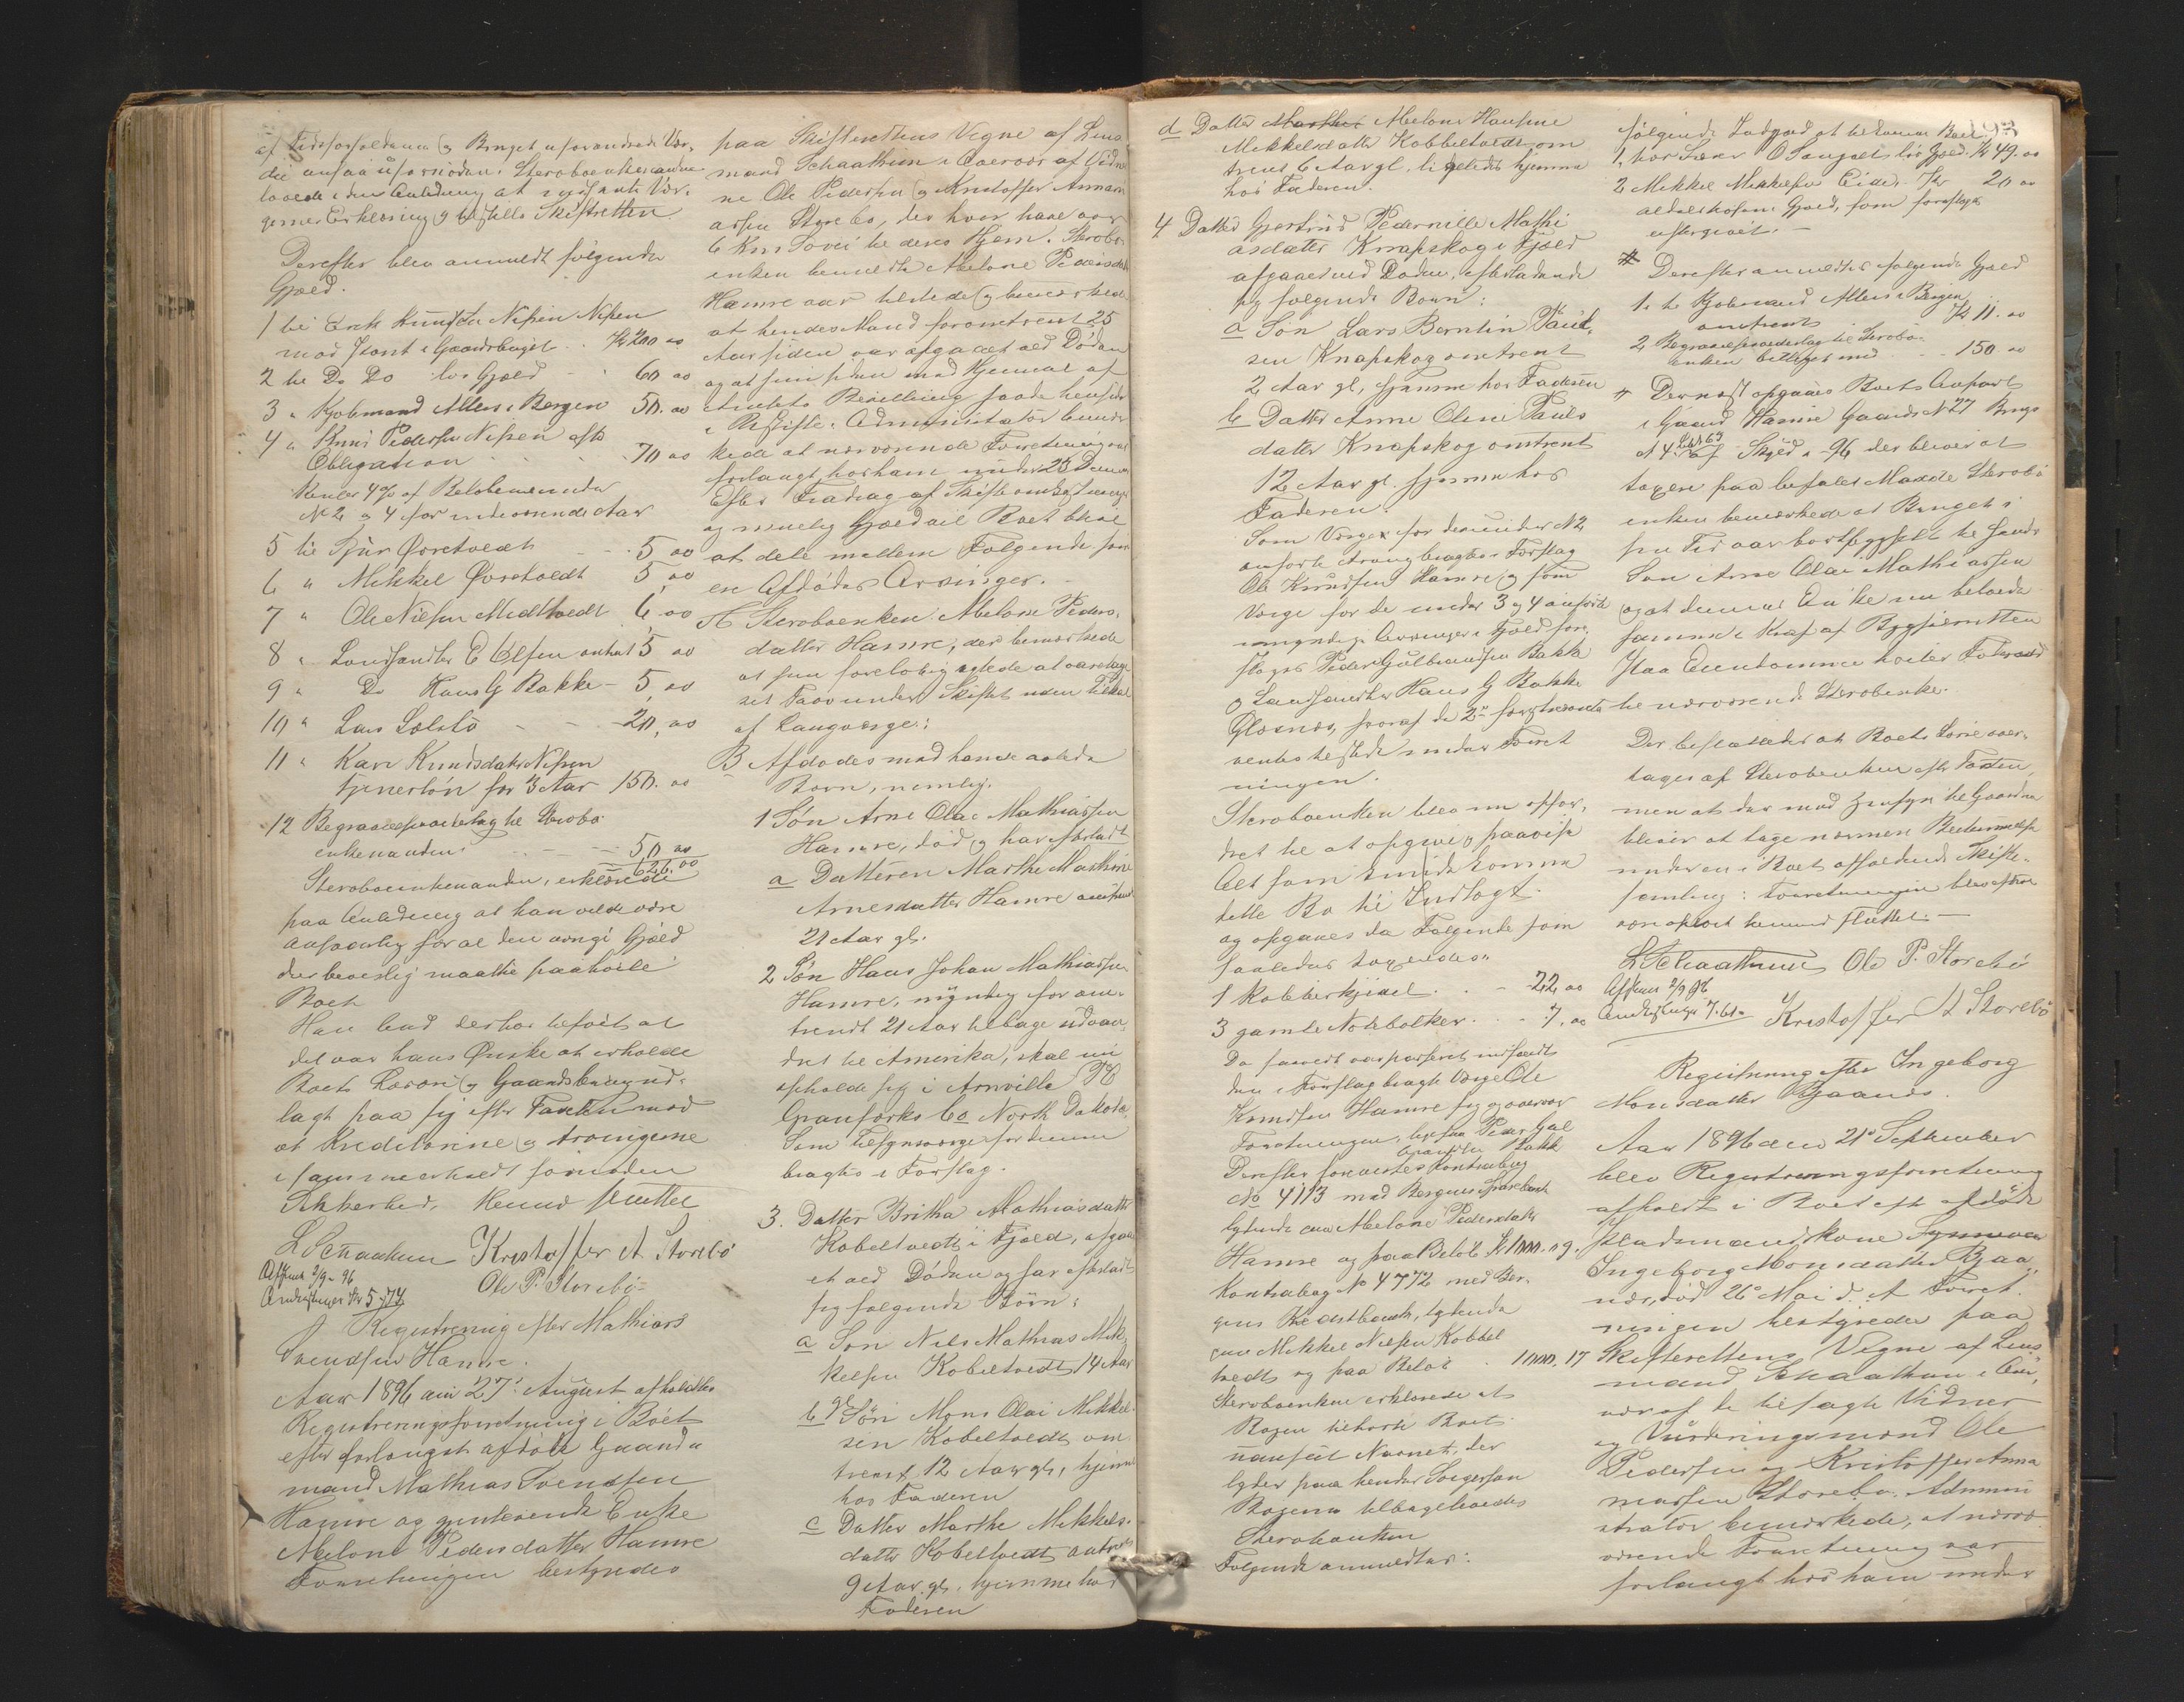 af Tidsforholdene og Bruget uforandrede Vær-
die ansaa ufornöden. Sterboenkemanden
lovede i den Anledning at indhente Vær-
gernes Erklæring og tilstille Skifteretten
Derefter blev anmeldt følgende
Gjæld.
1 til Erik Knudsen Nipen Nipen
mod Pant i Gaardsbruget .. Kr 200 00
2 til Do Do løs Gjæld - 60 00
3 " Kjøbmand Allers i Bergen 50. 00
4 " Knud Pedersen Nipen efter
Obligation . . . 70 00
Renter 4 % af Beløbene under
No 2 og 4 for indeværende Aar
5 til Sjur Øvretvedt - - 5 00
6 " Mikkel Øvretvedt 5 00
7 " Ole Nilsen Midttvedt 6, 00
8 " Landhandler E Olsen anhat 5 00
9 " Do Hans G Bakke - 5, 00
10 " Lars Solstö - - - 20, 00
11 " Kari Knudsdatter Nipen
tjenerlön for 3 Aar 150. 00
12 Begravelsesudlæg til Sterbo-
enkemanden . - - - 50 00
626.00
Sterboenkemanden, erklærede
paa Anledning at han vilde være
ansvarlig for al den øvrige Gjæld
der bevislig maatte paahvile
Boet
Han bad derhos tilført at
det var hans Ønske at erholde
Boets Løsøre og Gaardsbrug ud-
lagt paa sig efter Taxten mod
at Kreditorerne og Arvingerne
i sammenhold fornöden
Sikkerhed. Hermed sluttet
L Schaathun Kristoffer A. Storebö
Afskr 2/9 - 96 Ole P. Storebö
Andrstuer Kr 5,74
Registrering efter Mathias
Svendsen Hamre.
Aar 1896 den 27de August afholdtes
Registreringsforretning i Boet
efter forlængst afdöde Gaardn
mand Mathias Svendsen
Hamre og gjenlevende Enke
Abelone Pedersdatter Hamre
Forretningen bestyredes
paa Skifterettens Vegne af Lens
mand Schaathun i Overvær af Vidne
ne Ole Pedersen og Kristoffer Anmar
assen Storebö, der hver have over
6 Km Sövei til deres Hjem. Sterbo-
enken benævnte Abelone Pedersdatter
Hamre var tilstede og bemærkede
at hendes Mand for omtrent 25
Aar siden var afgaaet ved Döden
og at hun siden med Hjemmel af
Amtets Bevilling havde hensiddet
i Uskifte. Administrator bemær
kede at nærværende Forretning var
forlangt hos ham under 25 Dennes
Efter Fradrag af Skifteomkostninger
og muelig Gjæld vil Boet blive
at dele mellem Følgende som
ere Afdödes Arvinger.
A. Sterboenken Abelone Peders-
datter Hamre, der bemærkede
at hun forelöbig agtede at varetage
sit Tarv under Skiftet uden Tilkal
af Laugværge:
B Afdödes med hende avlede
Börn, nemlig:
1 Sön Arne Olai Mathiassen
Hamre, död og har efterladt
a Datteren Marthe Mathine
Arnesdatter Hamre omtrent
21 Aar gl.
2 Sön Hans Johan Mathiassen
Hamre, myndig for om-
trendt 21 Aar tilbage udvan-
dret til Amerika, skal nu
opholde sig i Arnville PO
Granforks Co North Dakota.
Som Tilsynsværge for denne
bragtes i Forslag.
3. Datter Britha Mathiasdatter
Kobeltvedt i Fjæld, afgaa
et ved Döden og har efterladt
sig følgende Börn:
a Sön Nils Mathias Mik-
kelsen Kobeltvedt 14 Aar
gl
b Sön Mons Olai Mikkel-
sen Kobeltvedt om
trent 12 Aar gl, hjemme
hos Faderen
c Datter Marthe Mikkels-
datter Kobeltvedt omtrent
9 Aar gl. hjemme hos
Faderen
d Datter Marthe Abelone Hansine
Mikkelsdatter Kobbeltvedt om
trent 6 Aar gl. ligeledes hjemme
hos Faderen.
4 Datter Gjertrud Pedernille Mathi
asdatter Knapskog i Fjæld
afgaaet ved Döden, efterladende
sig følgende Börn:
a Sön Lars Berntin Paul-
sen Knapskog omtrent
2 Aar gl, hjemme hos Faderen
b Datter Anne Oline Pauls
datter Knapskog omtrent
12 Aar gl. hjemme hos
Faderen.
Som Værge for den under No 2
anførte Arving bragtes i Forslag
Ole Knudsen Hamre og som
Værge for de under 3 og 4 anførte
umyndige Arvinger i Fjæld fore-
sloges Peder Gulbrandsen Bakke
og Landhandler Hans G Bakke
Glesnæs, hvoraf de 2de förstnævnte
ventes tilstede under Forret
ningen.
Sterboenken blev nu opfor-
dret til at opgive og paavise
Alt som kunde komme
dette Bo til Indtægt.
og opgaves da Følgende som
saaledes taxeredes.
1 Kobberkjedel . . - 22 00
3 gamle Notebolker . . - 7, 00
Da saavidt var passeret indfandt
den i Forslag bragte Værge Ole
Knudsen Hamre sig og overvar
Forretningen, ligesaa Peder Gul
brandsen Bakke
Derefter forevistes Kontrabog
No 4113 med Bergens Sparebank
lydende paa Abelone Pedersdatter
Hamre og paa Beløb Kr 1000. 09.
Kontrabog No 4772 med Ber-
gens Kreditbank, lydende
paa Mikkel Nilsen Kobbel
tvedt og paa Beløb . 1000. 17
Sterboenken erklærede at
Bogen tilhørte Boet
uanseet Navnet, der
lyder paa hendes Svigersøn
Bøgerne tilbageleveredes
Sterboenken
Følgende anmeldtes:
193
følgende Indgjæld at tilkomme Boet.
1. hos Lærer O Songstad løs Gjæld. Kr 49. 00
2 Mikkel Mikkelsen Eide. Kr 20 00
aldeleshosen Gjæld, som foresloges
eftergivet. -
# Derefter anmeldtes følgende Gjæld
1. til Kjøbmand Allers i Bergen
omtrent Kr 11. 00
2 Begravelsesudlæg til Sterbo-
enken betinget med - - 150 00
# Dernæst opgaves Boets Anpart
i Gaard Hamre Gaards No 27 Brugs
No 4 Skyld 96 der bliver at
taxere paa befalet Maade Sterbo-
enken bemærkede at Bruget i
sin Tid var bortbygslet til hendes
Sön Arne Olai Mathiassen
og at dennes Enke nu beboede
samme i Kraft af Bygselretten
Paa Eiendommen hviler Föderaad
til nærværende Sterboenke.
Der besluttedes at Boets Løsøre over-
tages af Sterboenken efter Taxten,
men at der med Hensyn til Gaarden
bliver at tage nærmere Bestemmelse
under en i Boet afholdende Skifte-
samling: Forretningen blev efter
oplæst hermed sluttet. -
L Schaathun Ole P. Storebö
Afskr 2/9 96
Andrstuer 7.61. Kristoffer A Storebö
Registrering efter Ingeborg
Monsdatter Bjaanæs.
Aar 1896 den 21de September
blev Registreringsforretning
afholdt i Boet efter afdöde
Pladsmandskone Synneva
Ingeborg Monsdatter Bjaa-
næs, död 26de Mai d. A. Forret-
ningen bestyredes paa
Skifterettens Vegne af Lens
mand Schaathun i Over
vær af de tilsagte Vidner
og Vurderingsmænd Ole
Pedersen og Kristoffer Anma
massen Storebö. Admini
strator bemærkede, at nærvæ
værende Forretning var
forlangt hos ham under